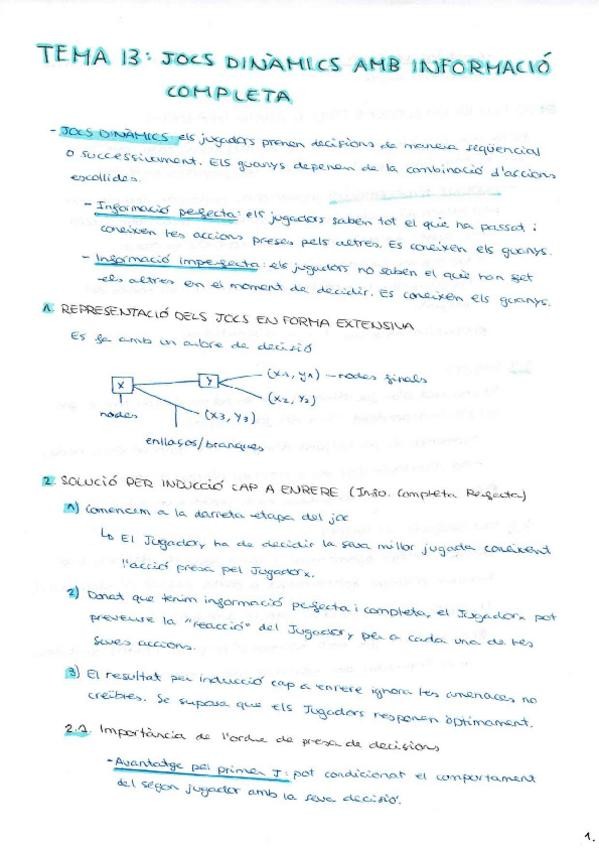 TEMA 13: JOCS DINÀMICS AMB INFORMACIÓ
COMPLETA
- JOCS DINÀMICS: els jugadors prenen decisions de manera seqüencial
o successivament. Els guanys depenen de la combinació d'accions
escollides.
- Informació perfecta: els jugadors saben tot el que ha passat i
coneixen les accions preses pels altres. Es coneixen els guanys.
- Informació imperfecta: els jugadors no saben el què han fet
els altres en el moment de decidir. Es coneixen els guanys.
1. REPRESENTACIÓ DELS JOCS EN FORMA EXTENSIVA
Es fa amb un arbre de decisió
X
Y
(X1, Y1) – nodes finals
(X2, Y2)
nodes
(X3, Y3)
enllaços/branques
2. SOLUCIÓ PER INDUCCIÓ CAP A ENRERE (Info. Completa Perfecta)
1) Comencem a la darrera etapa del joc
↳ El Jugador y ha de decidir la seva millor jugada coneixent
l'acció presa pel Jugador x.
2) Donat que tenim informació perfecta i completa, el Jugador x pot
preveure la "reacció" del Jugador y per a cada una de les
seves accions.
3) El resultat per inducció cap a enrere ignora les amenaces no
creïbles. Se suposa que els Jugadors responen òptimament.
2.1. Importància de l'ordre de presa de decisions
- Avantatge pel primer J: pot condicionar el comportament
del segon jugador amb la seva decisió.
1.